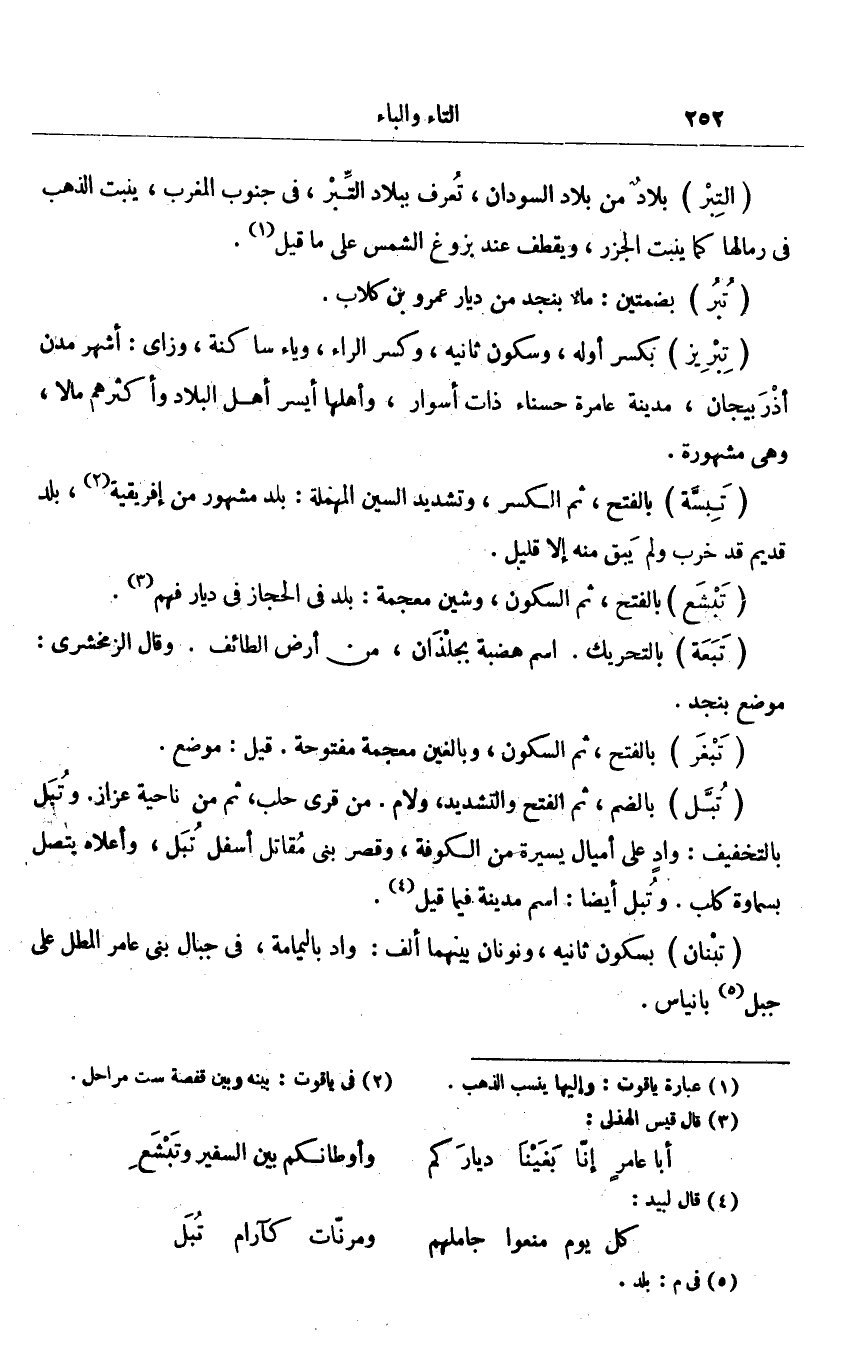 ٢٥٢
التاء والباء
( التِبْر ) بلادٌ من بلاد السودان ، تُعرف ببلاد التِّبْر ، فى جنوب المغرب ، ينبت الذهب
فى رمالها كما ينبت الجزر ، ويقطف عند بزوغ الشمس على ما قيل(١) .
( تُبُر ) بضمتين : ماء بنجد من ديار عمرو بن كلاب .
( تِبْرِيز ) بكسر أوله ، وسكون ثانيه ، وكسر الراء ، وياء ساكنة ، وزاى : أشهر مدن
أذْرَبيجان ، مدينة عامرة حسناء ذات أسوار ، وأهلها أيسر أهل البلاد وأكثرهم مالا ،
وهى مشهورة .
( تَبِسَّة ) بالفتح ، ثم الكسر ، وتشديد السين المهملة : بلد مشهور من إفريقية(٢) ، بلد
قديم قد خرب ولم يَبق منه إلا قليل .
( تَبْشَع ) بالفتح ، ثم السكون ، وشين معجمة : بلد فى الحجاز فى ديار فهم(٣) .
( تَبَعَة ) بالتحريك . اسم هضبة بجلْذَان ، من أرض الطائف . وقال الزمخشرى :
موضع بنجد .
( تَبْغَر ) بالفتح ، ثم السكون ، وبالغين معجمة مفتوحة . قيل : موضع .
( تُبَّل ) بالضم ، ثم الفتح والتشديد، ولام . من قرى حلب، ثم من ناحية عزاز. وتُبَل
بالتخفيف : وادٍ على أميال يسيرة من الكوفة ، وقصر بنى مُقاتل أسفل تُبَل ، وأعلاه يتصل
بسماوة كلب . وتُبل أيضا : اسم مدينة فيما قيل(٤) .
( تبْنان ) بسكون ثانيه ، ونونان بينهما ألف : واد باليمامة ، فى جبال بنى عامر المطل على
جبل(٥) بانياس .
(١) عبارة ياقوت : وإليها ينسب الذهب . (٢) فى ياقوت : بينه وبين قفصة ست مراحل .
(٣) قال قيس الهذلى :
أبا عامرٍ إنّا بَغَيْنَا ديارَكم وأوطانكم بين السفير وتَبْشَعِ
(٤) قال لبيد :
كل يوم منعوا جاملهم ومرنّات كآرام تُبَل
(٥) فى م : بلد .